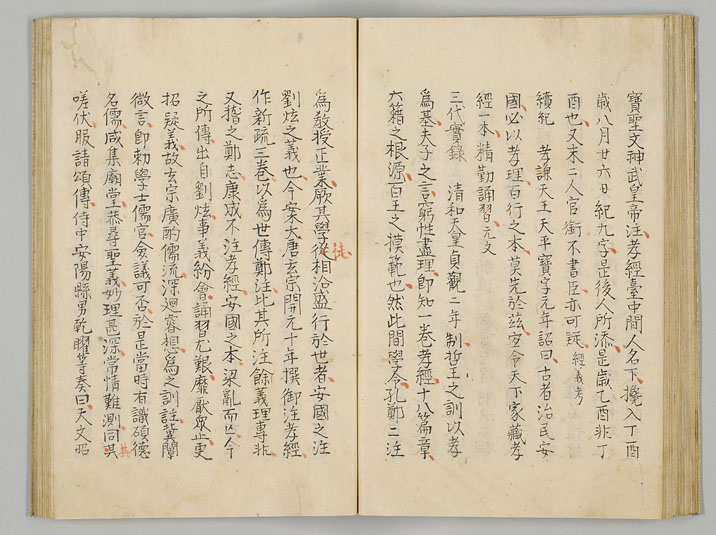 寶聖文神武皇帝注孝經臺中間人名下攙入丁酉
歲八月廿六日紀九字是後人所添是歲乙酉非丁
酉也又末二人官銜不書臣亦可疑 經義考
續紀 孝謙天王天平寶字元年詔曰古者治民安
國必以孝理百行之本莫先於茲宜令天下家藏孝
經一本精勤誦習元文
三代實錄 清和天皇貞觀二年制哲王之訓以孝
為基夫子之言窮性盡理即知一卷孝經十八篇章
六籍之根源百王之摸範也然此間學令孔鄭二注
為教授正業厥其學徒相沿盛行於世者安國之注
徒
劉炫之義也今案大唐玄宗開元十年撰御注孝經
作新疏三卷以為世傳鄭注比其所注餘義理專非
又稽之鄭志康成不注孝經安國之本梁亂而亡今
之所傳出自劉炫事義紛會誦習尤艱靡厭眾止更
招疑義故玄宗廣酌儒流深迴睿想為之訓註冀闡
微言即勅學士儒官僉議可否於是當時有識碩德
名儒咸集廟堂恭尋聖義妙理甚深常情難測同共
共
嗟伏服請頌傳侍中安陽縣男乾曜等奏曰天文昭